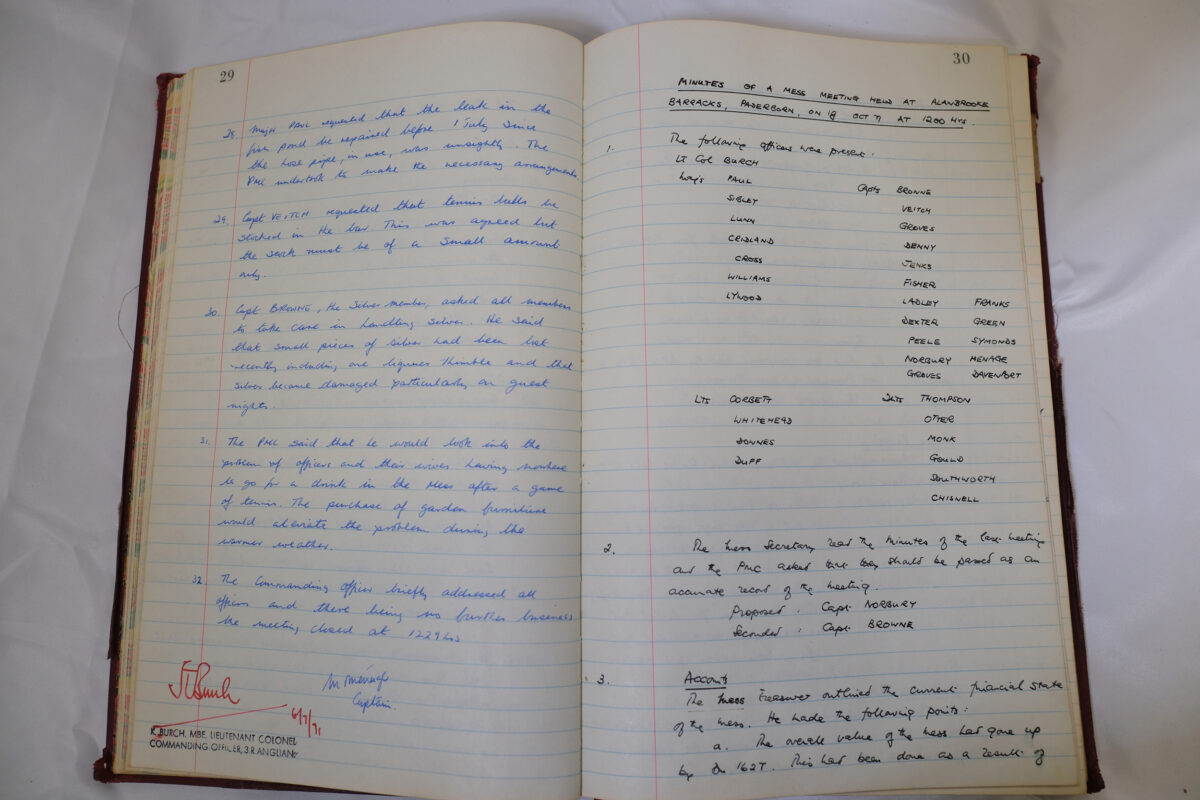 29
28. Major PAUL requested that the leak in the
fish pond be repaired before 1 July since
the hose pipe, in use, was unsightly. The
PMC undertook to make the necessary arrangements
29. Capt VEITCH requested that tennis balls be
stocked in the bar. This was agreed but
the stock must be of a small amount
only.
30. Capt BROWNE, the Silver member, asked all members
to take care in handling silver. He said
that small pieces of silver had been lost
recently including one liqueur thimble and that
silver became damaged particularly on guest
nights.
31. The PMC said that he would look into the
problem of officers and their wives having nowhere
to go for a drink in the Mess after a game
of tennis. The purchase of garden furniture
would alleviate the problem during the
warmer weather.
32. The Commanding Officer briefly addressed all
officers and there being no further business
the meeting closed at 1229 hrs
Captain.
6/7/71
K. BURCH, MBE, LIEUTENANT COLONEL
COMMANDING OFFICER, 3 R ANGLIAN
30
MINUTES OF A MESS MEETING HELD AT ALANBROOKE
BARRACKS, PADERBORN, ON 18 OCT 71 AT 1200 HRS.
1. The following officers were present.
Lt Col BURCH
Maj's PAUL Capts BROWNE
SIBLEY VEITCH
LUNN GROVES
CRIDLAND DENNY
CROSS JENKS
WILLIAMS FISHER
LYWOOD LADLEY FRANKS
DEXTER GREEN
PEELE SYMONDS
NORBURY MENAGE
GROVES DAVENPORT
Lts CORBETT 2Lts THOMPSON
WHITEHEAD OTTER
DOWNES MONK
DUFF GOULD
SOUTHWORTH
CHISNELL
2. The Mess Secretary read the Minutes of the last meeting
and the PMC asked that they should be passed as an
accurate record of the meeting.
Proposed : Capt. NORBURY
Seconded : Capt. BROWNE
3. Accounts
The Mess Treasurer outlined the current financial state
of the mess. He made the following points:
a. The overall value of the mess had gone up
by Dm 1627. This had been done as a result of